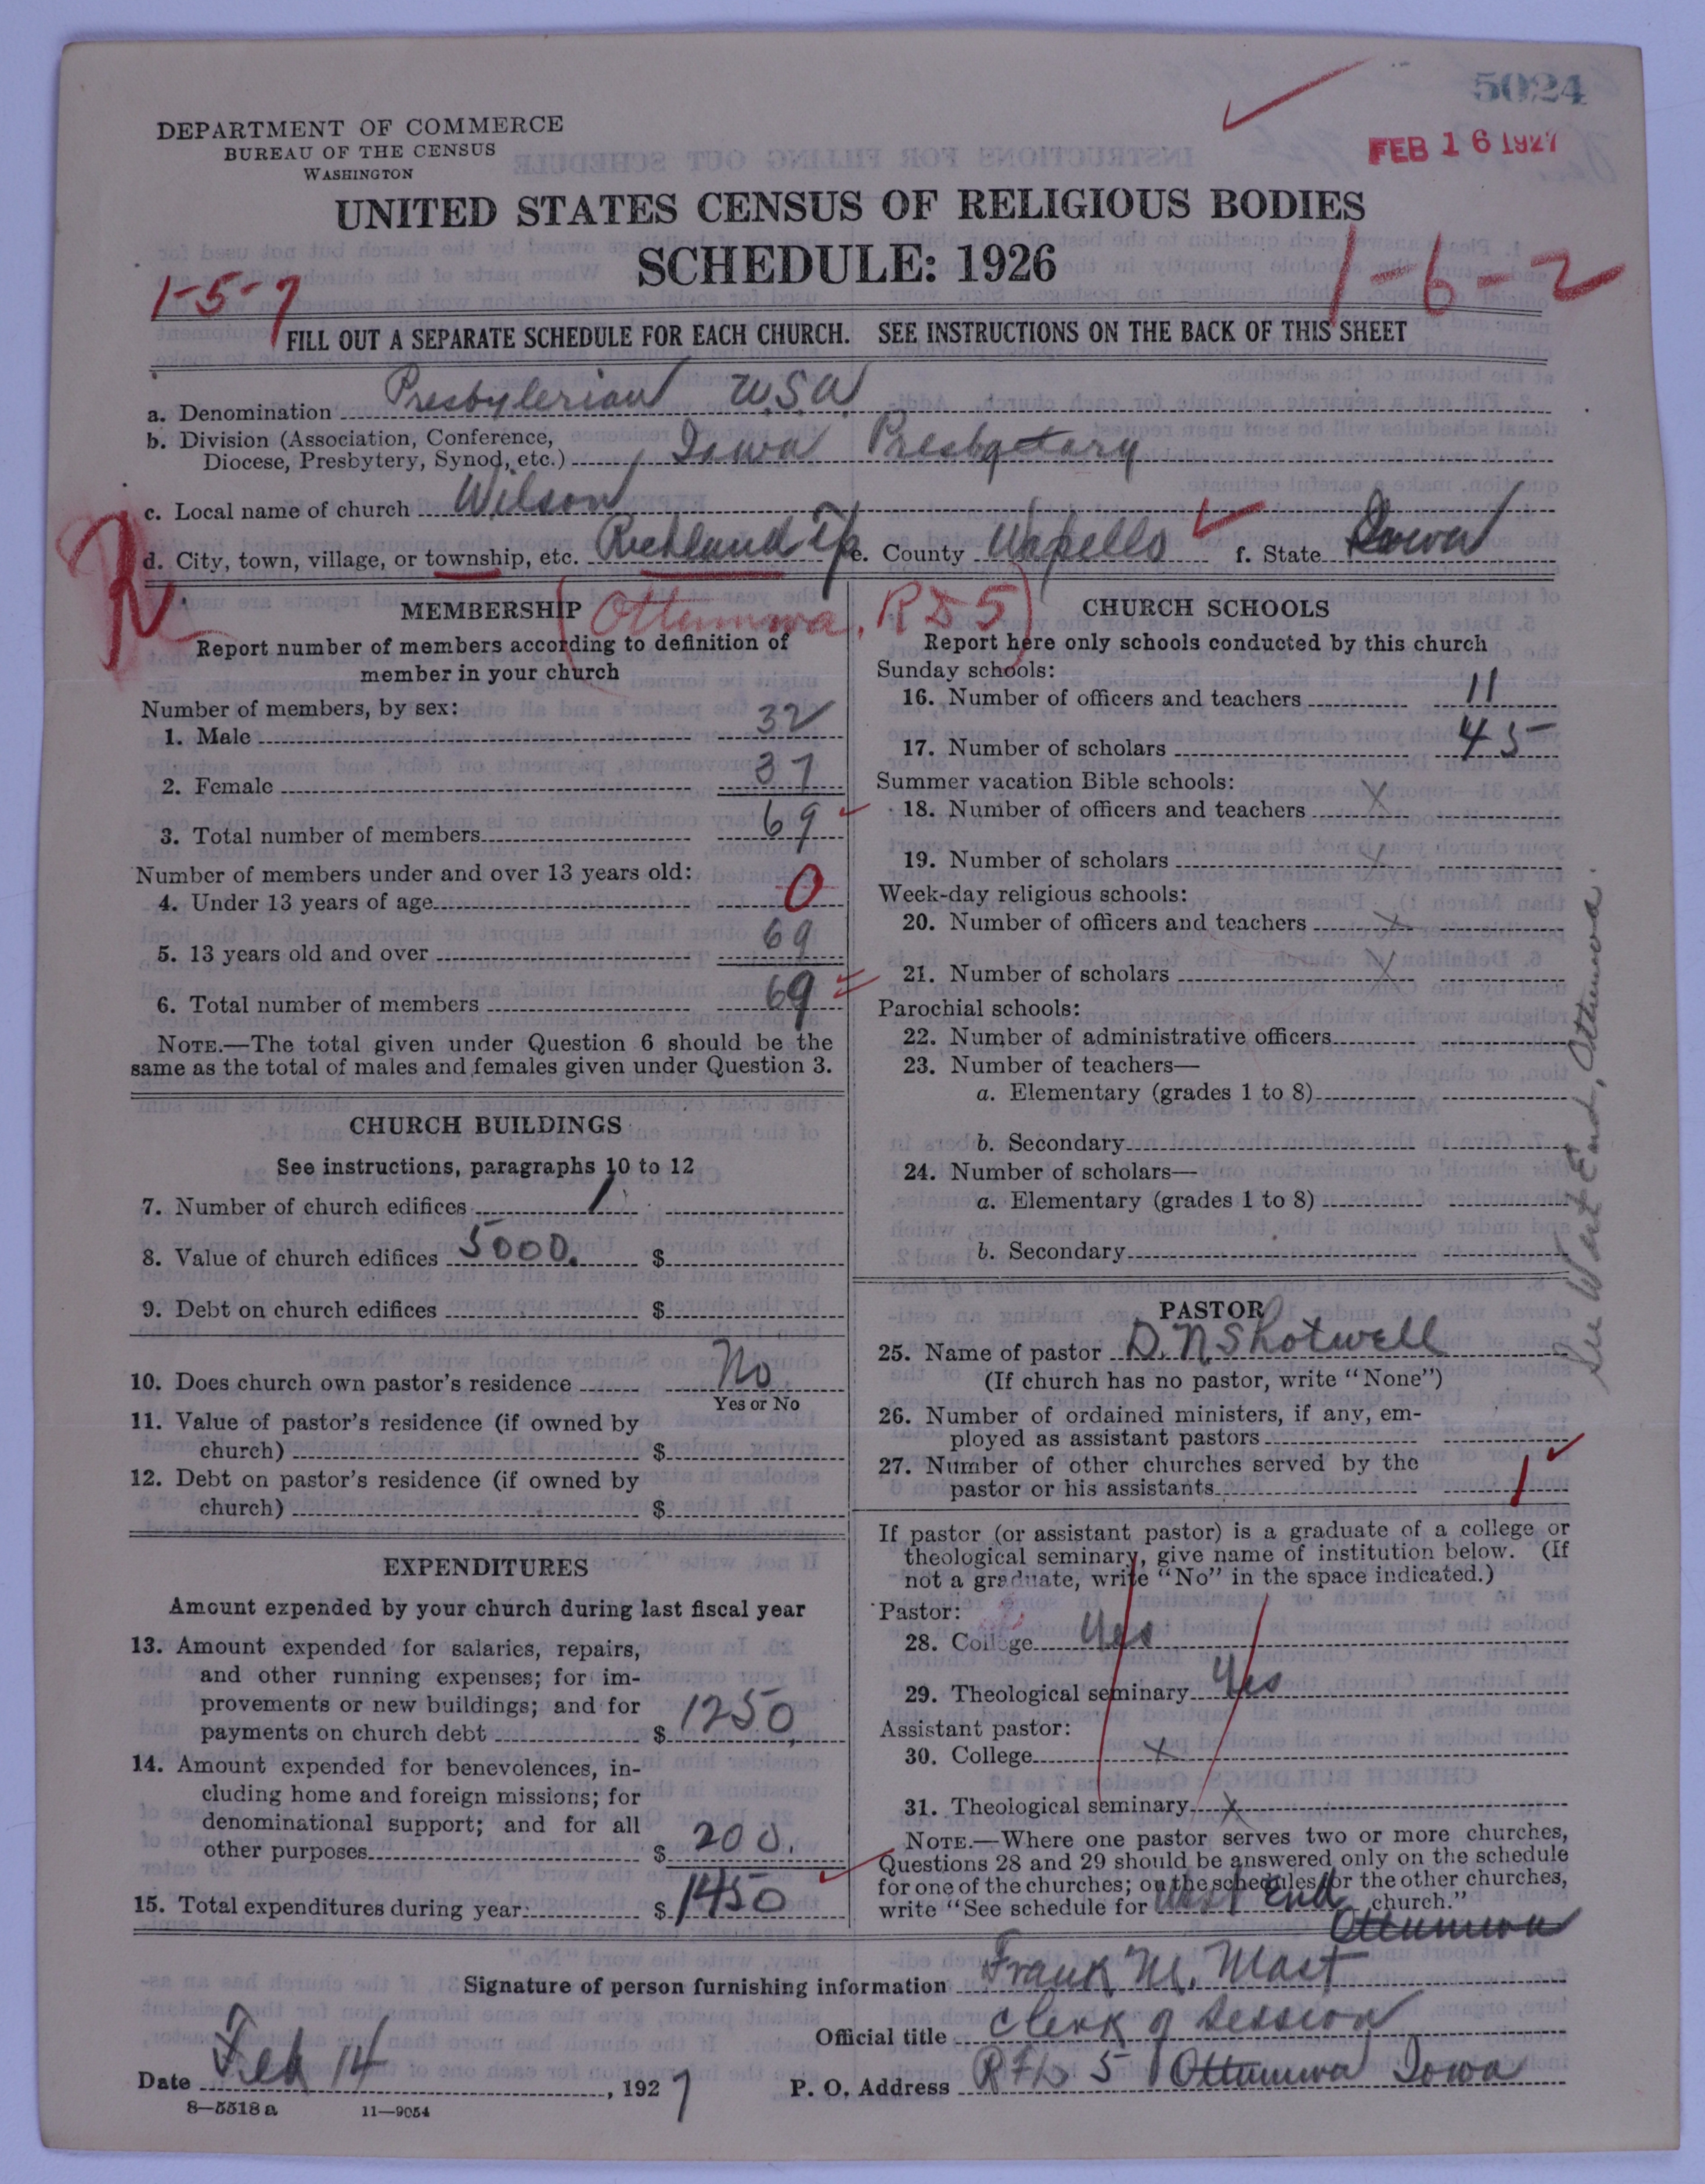 5024
DEPARTMENT OF COMMERCE
BUREAU OF THE CENSUS
WASHINGTON
FEB 16 1927
UNITED STATES CENSUS OF RELIGIOUS BODIES
SCHEDULE: 1926
1-5-7
1-6-2
FILL OUT A SEPARATE SCHEDULE FOR EACH CHURCH. SEE INSTRUCTIONS ON THE BACK OF THIS SHEET
a. Denomination Presbyterian U.S.A.
b. Division (Association, Conference,
Diocese, Presbytery, Synod, etc.) Iowa Presbytary
c. Local name of church Wilson
d. City, town, village, or township, etc. Richland Tp e. County Wapello f. State Iowa
R
(Ottumwa, RD5)
MEMBERSHIP
Report number of members according to definition of
member in your church
Number of members, by sex:
1. Male 32
2. Female 37
3. Total number of members 69
Number of members under and over 13 years old:
4. Under 13 years of age 0
5. 13 years old and over 69
6. Total number of members 69
NOTE.—The total given under Question 6 should be the
same as the total of males and females given under Question 3.
CHURCH BUILDINGS
See instructions, paragraphs 10 to 12
7. Number of church edifices 1
8. Value of church edifices 5000. $
9. Debt on church edifices $
10. Does church own pastor's residence No
Yes or No
11. Value of pastor's residence (if owned by
church) $
12. Debt on pastor's residence (if owned by
church) $
EXPENDITURES
Amount expended by your church during last fiscal year
13. Amount expended for salaries, repairs,
and other running expenses; for im-
provements or new buildings; and for
payments on church debt $ 1250
14. Amount expended for benevolences, in-
cluding home and foreign missions; for
denominational support; and for all
other purposes $ 200.
15. Total expenditures during year $ 1450
CHURCH SCHOOLS
Report here only schools conducted by this church
Sunday schools:
16. Number of officers and teachers 11
17. Number of scholars 45
Summer vacation Bible schools:
18. Number of officers and teachers x
19. Number of scholars x
Week-day religious schools:
20. Number of officers and teachers x
21. Number of scholars x
Parochial schools:
22. Number of administrative officers
23. Number of teachers—
a. Elementary (grades 1 to 8)
b. Secondary
24. Number of scholars—
a. Elementary (grades 1 to 8)
b. Secondary
See West End, Ottumwa.
PASTOR
25. Name of pastor D. N. Shotwell
(If church has no pastor, write "None")
26. Number of ordained ministers, if any, em-
ployed as assistant pastors
27. Number of other churches served by the
pastor or his assistants 1
If pastor (or assistant pastor) is a graduate of a college or
theological seminary, give name of institution below. (If
not a graduate, write "No" in the space indicated.)
Pastor:
28. College Yes
29. Theological seminary Yes
Assistant pastor:
30. College x
31. Theological seminary x
NOTE.—Where one pastor serves two or more churches,
Questions 28 and 29 should be answered only on the schedule
for one of the churches; on the schedules for the other churches,
write "See schedule for West End church."
Ottumwa
Signature of person furnishing information Frank M. Mast
Official title Clerk of Session
Date Feb 14, 1927 P. O. Address RFD 5 Ottumwa Iowa
8—5518a 11—9054